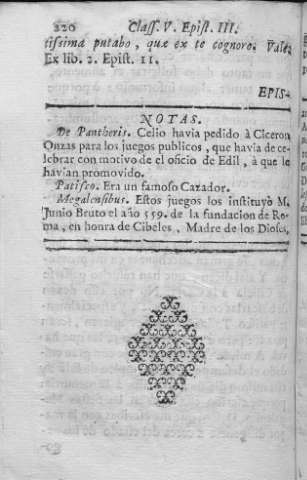 220 Class. V. Epist. III.
tissima putabo, quæ ex te cognoro. Vale.
Ex lib. 2. Epist. 11.
EPIS-
NOTAS.
De Pantheris. Celio havia pedido à Ciceron
Onzas para los juegos publicos, que havia de ce-
lebrar con motivo de el oficio de Edil, à que le
havian promovido.
Patisco. Era un famoso Cazador.
Megalensibus. Estos juegos los instituyò M.
Junio Bruto el año 559. de la fundacion de Ro-
ma, en honra de Cibeles, Madre de los Dioses,